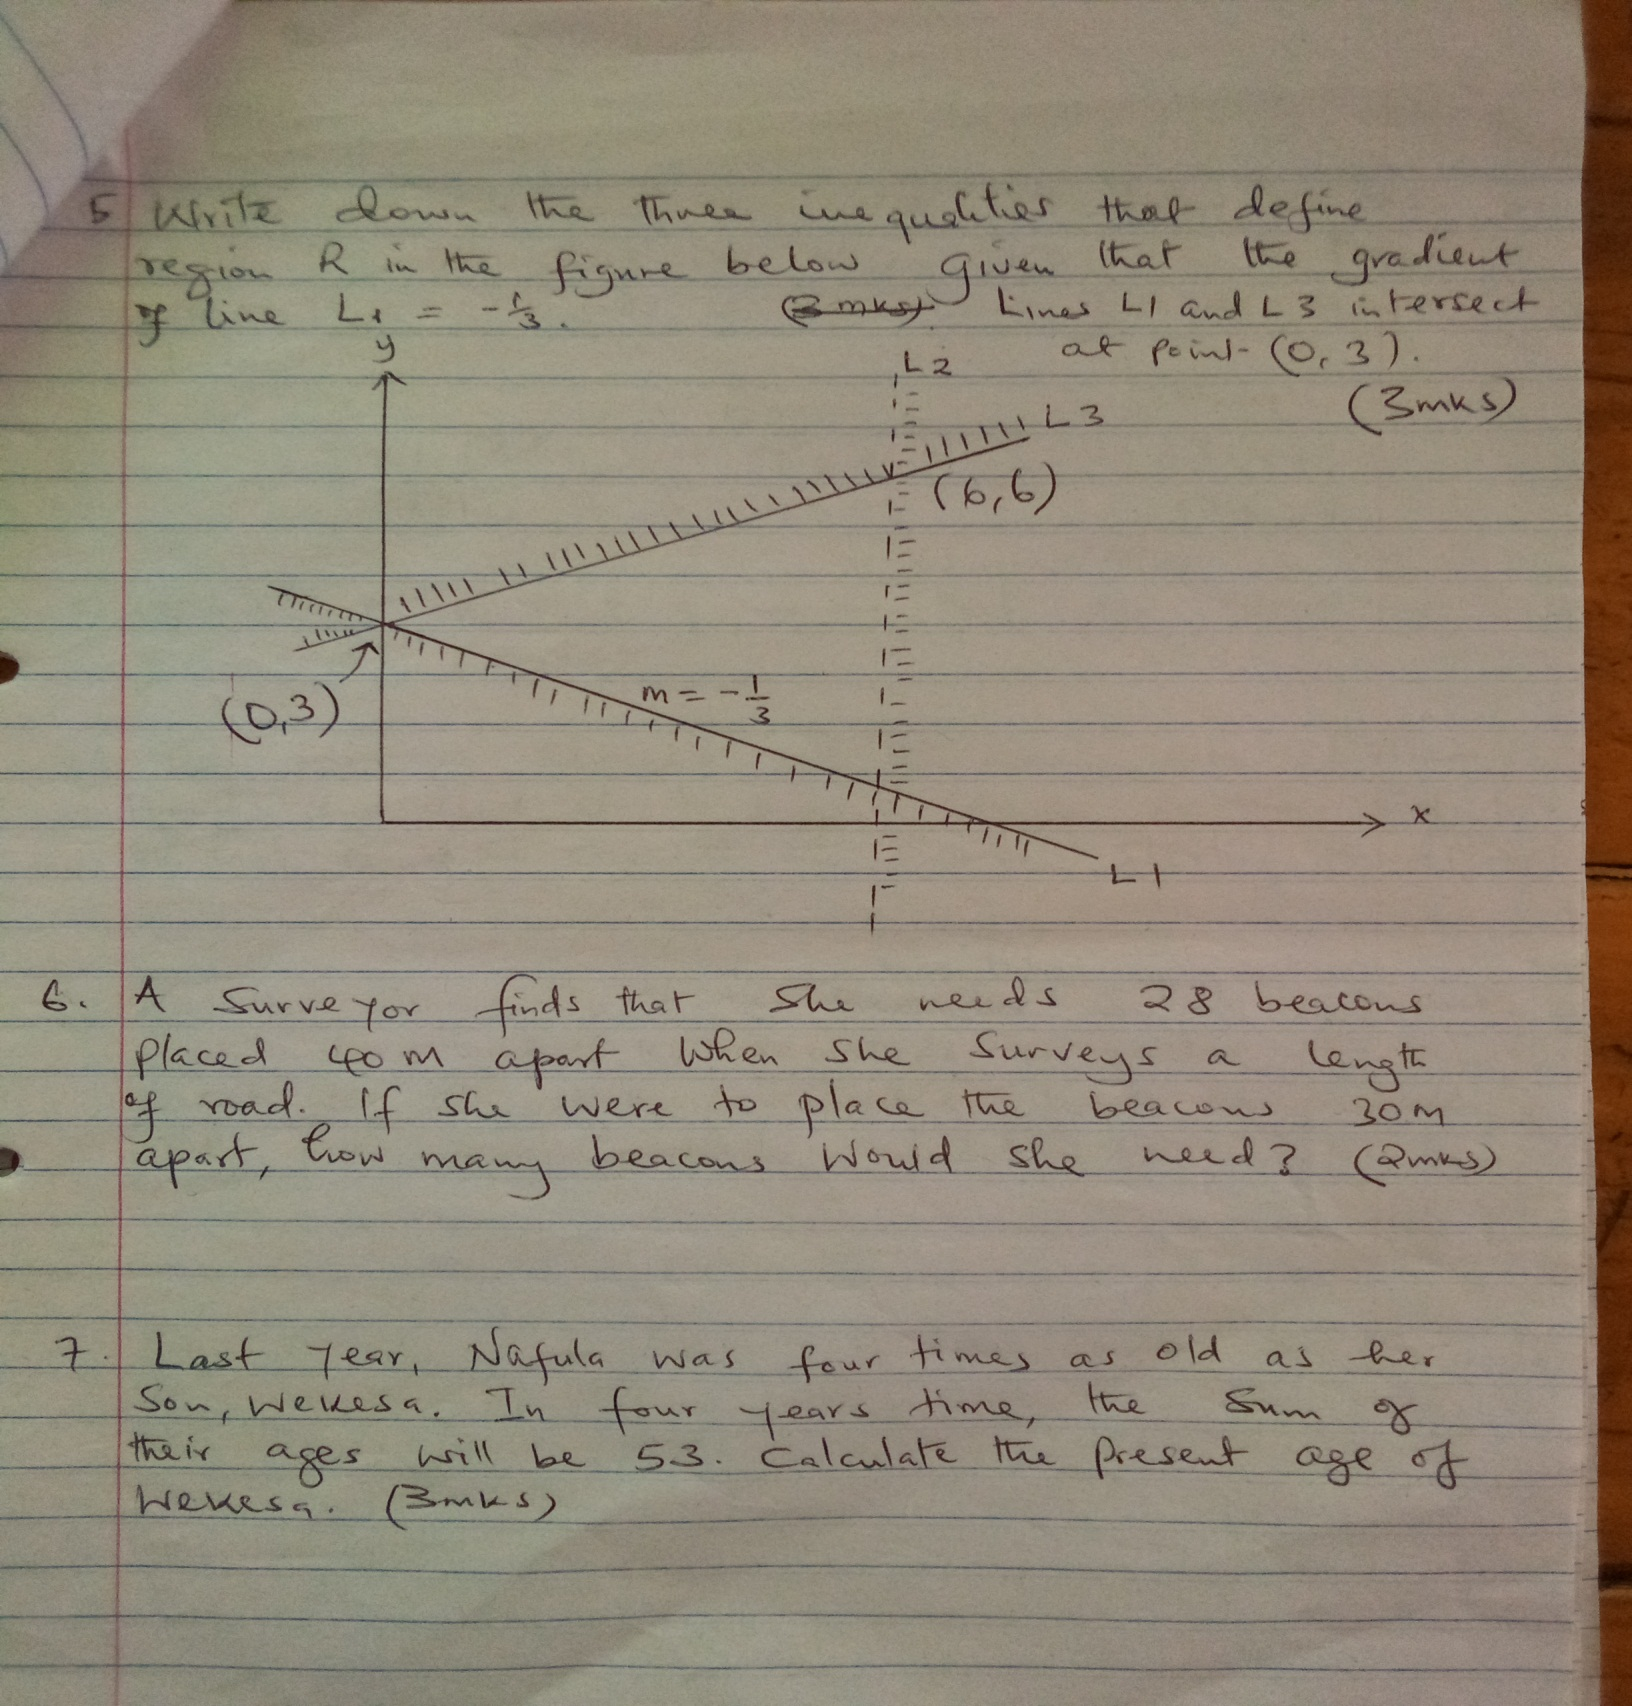 5 Write down the three inequalities that define
region R in the figure below given that the gradient
of line L1 = -1/3. (3 mks) Lines L1 and L3 intersect
at point (0, 3).
(3mks)
y
L2
L3
(6,6)
(0,3)
m = -1/3
x
L1
6. A surveyor finds that she needs 28 beacons
placed 40m apart when she surveys a length
of road. If she were to place the beacons 30m
apart, how many beacons would she need? (2mks)
7. Last year, Nafula was four times as old as her
son, Wekesa. In four years time, the sum of
their ages will be 53. Calculate the present age of
Wekesa. (3mks)